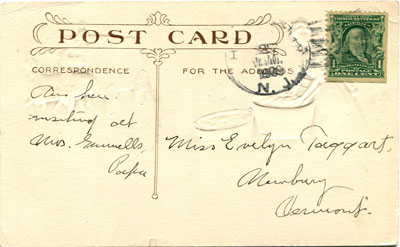 POST CARD
CORRESPONDENCE
FOR THE ADDRESS
Am here
visiting at
Mrs.
Papa
N. J.
Miss Evelyn Taggart.
Newbury
Vermont.
ONE CENT